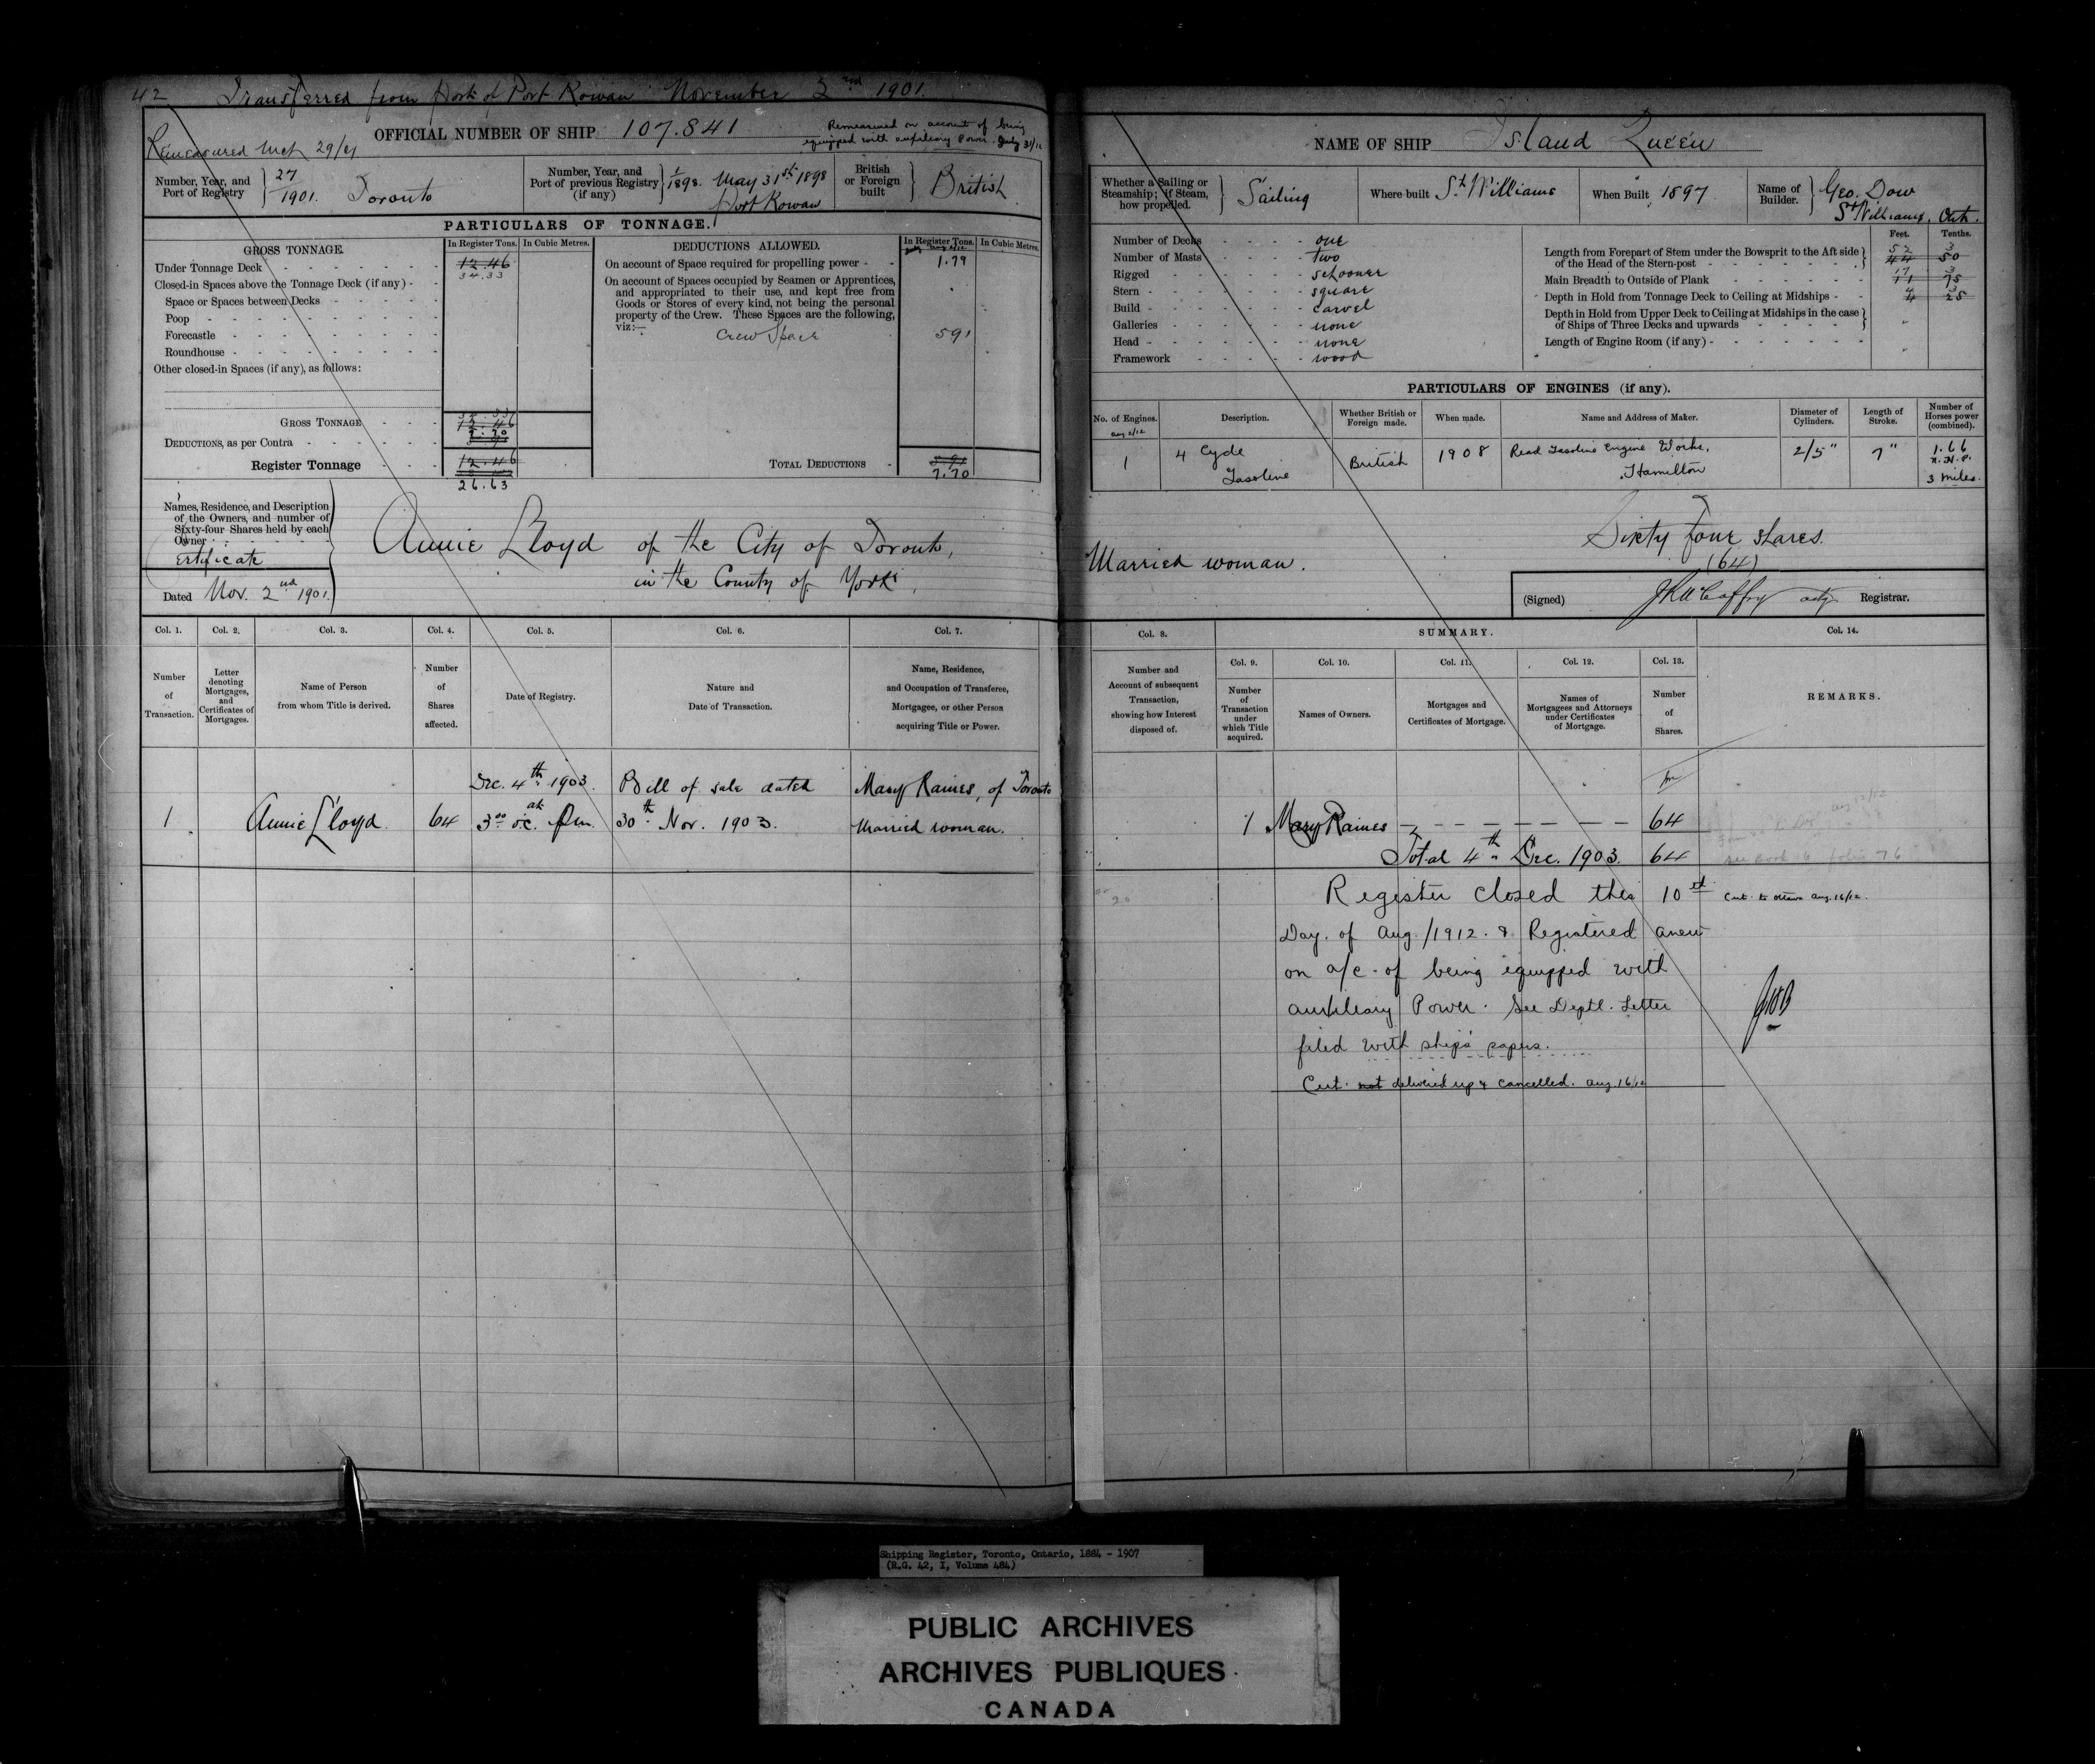 42 Transferred from Port of Port Rowan November 2nd 1901.
OFFICIAL NUMBER OF SHIP 107.841
Remeasured on account of being
equipped with auxiliary Power. July 31/12
Remeasured
Number, Year, and
Port of Registry
27
1901. Toronto
Number, Year, and
Port of previous Registry
(if any)
1/1898. May 31st 1898
Port Rowan
British
or Foreign
built
British
PARTICULARS OF TONNAGE.
GROSS TONNAGE.
In Register Tons. In Cubic Metres.
Under Tonnage Deck 12.46
34.33
Closed-in Spaces above the Tonnage Deck (if any)
Space or Spaces between Decks
Poop
Forecastle
Roundhouse
Other closed-in Spaces (if any), as follows:
GROSS TONNAGE 34.33
12.46
7.70
DEDUCTIONS, as per Contra
Register Tonnage 12.46
26.63
DEDUCTIONS ALLOWED.
In Register Tons. In Cubic Metres.
On account of Space required for propelling power 1.79
On account of Spaces occupied by Seamen or Apprentices,
and appropriated to their use, and kept free from
Goods or Stores of every kind, not being the personal
property of the Crew. These Spaces are the following,
viz:—
Crew Space 591
TOTAL DEDUCTIONS 5.91
7.70
Names, Residence, and Description
of the Owners, and number of
Sixty-four Shares held by each
Owner
Certificate
Dated Nov. 2nd 1901.
Annie Lloyd of the City of Toronto,
in the County of York,
Col. 1. Col. 2. Col. 3. Col. 4. Col. 5. Col. 6. Col. 7.
Number
of
Transaction.
Letter
denoting
Mortgages,
and
Certificates of
Mortgages.
Name of Person
from whom Title is derived.
Number
of
Shares
affected.
Date of Registry.
Nature and
Date of Transaction.
Name, Residence,
and Occupation of Transferee,
Mortgagee, or other Person
acquiring Title or Power.
Dec. 4th 1903. Bill of sale dated Mary Raines, of Toronto
1 Annie Lloyd. 64 3.00 o.c. P.m. 30th Nov. 1903. Married woman.
NAME OF SHIP Island Queen
Whether a Sailing or
Steamship; if Steam,
how propelled.
Sailing
Where built St. Williams
When Built 1897
Name of
Builder.
Geo. Dow
St Williams, Ont.
Number of Decks one
Number of Masts two
Rigged schooner
Stern square
Build carvel
Galleries none
Head none
Framework wood
Feet. Tenths.
Length from Forepart of Stem under the Bowsprit to the Aft side
of the Head of the Stern-post
52 3
44 50
Main Breadth to Outside of Plank
17 3
11 75
Depth in Hold from Tonnage Deck to Ceiling at Midships
4 3
4 25
Depth in Hold from Upper Deck to Ceiling at Midships in the case
of Ships of Three Decks and upwards
Length of Engine Room (if any)
PARTICULARS OF ENGINES (if any).
No. of Engines. Description. Whether British or
Foreign made. When made. Name and Address of Maker. Diameter of
Cylinders. Length of
Stroke. Number of
Horses power
(combined).
Aug 2/12
1 4 Cycle
Gasoline
British 1908 Read Gasoline Engine Works,
Hamilton
2/5" 7" 1.66
N.H.P.
3 miles.
Married woman.
Sixty four shares.
(64)
(Signed) Registrar.
Col. 8. SUMMARY. Col. 14.
Col. 9. Col. 10. Col. 11. Col. 12. Col. 13.
Number and
Account of subsequent
Transaction,
showing how Interest
disposed of.
Number
of
Transaction
under
which Title
acquired.
Names of Owners.
Mortgages and
Certificates of Mortgage.
Names of
Mortgagees and Attorneys
under Certificates
of Mortgage.
Number
of
Shares.
REMARKS.
1 Mary Raines 64
Total 4th Dec. 1903. 64
see Book 6 folio 76
Register closed this 10th
Cert. to Ottawa Aug. 16/12.
Day. of Aug./1912. & Registered anew
on a/c of being equipped with
auxiliary Power. See Deptl. Letter
filed with ship's papers.
Cert. not delivered up & cancelled. Aug 16/12
Shipping Register, Toronto, Ontario, 1884 - 1907
(R.G. 42, I, Volume 484)
PUBLIC ARCHIVES
ARCHIVES PUBLIQUES
CANADA